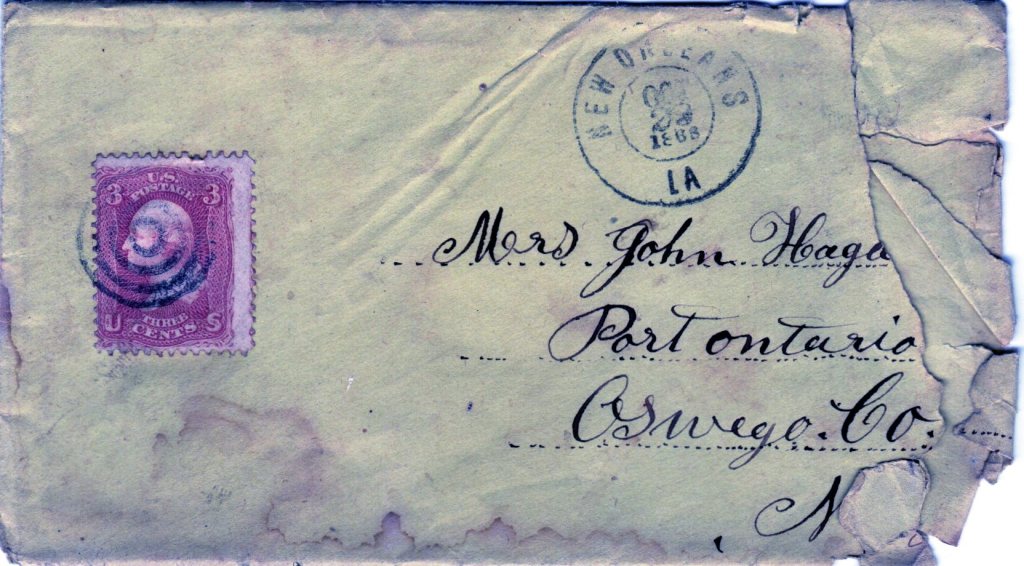 NEW ORLEANS
1868
LA
3 U.S. 3
POSTAGE
THREE
U CENTS S
Mrs John Haga
Port ontario
Oswego. Co.
N